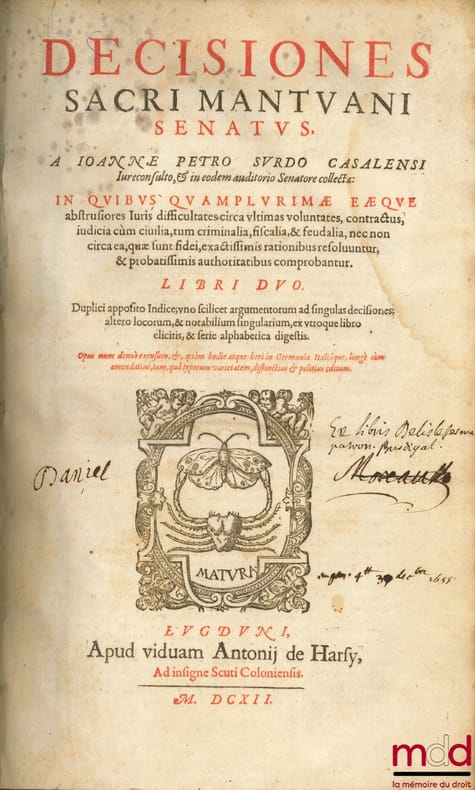 DECISIONES
SACRI MANTVANI
SENATVS,
A IOANNE PETRO SVRDO CASALENSI
Iureconsulto, & in eodem auditorio Senatore collectæ:
IN QVIBVS QVAMPLVRIMÆ EÆQVE
abstrusiores Iuris difficultates circa vltimas voluntates, contractus,
iudicia cùm ciuilia, tum criminalia, fiscalia, & feudalia, nec non
circa ea, quæ sunt fidei, exactissimis rationibus resoluuntur,
& probatissimis authoritatibus comprobantur.
LIBRI DVO.
Duplici apposito Indice; vno scilicet argumentorum ad singulas decisiones;
altero locorum, & notabilium singularium, ex vtroque libro
elicitis, & serie alphabetica digestis.
Opus nunc denuò excusum, &, quàm hodie atque heri in Germania Italiáque, longè cùm
emendatius, tum, quod typorum varietatem, distinctius & politius editum.
Daniel
Ex libris Delisle
patron. Burdigal.
Moreau
MATVRA
LVGDVNI,
Apud viduam Antonij de Harsy,
Ad insigne Scuti Coloniensis.
M. DCXII.
mdd
la mémoire du droit